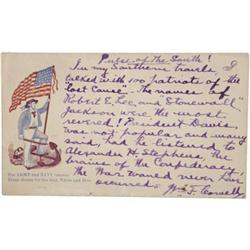 Pulse of the South!
In my Southern Travels, I
talked with 100 patriots of the
"lost Cause". The names of
Robert E. Lee, and "Stonewall"
Jackson were the most
revered! President Davis,
was not popular and many
said, had he listened to
Alexander H. Stephens, the
brains of the Confederacy
the War would never have
occurred. W. F. Connelly
The ARMY and NAVY forever,
Three cheers for the Red, White and Blue.